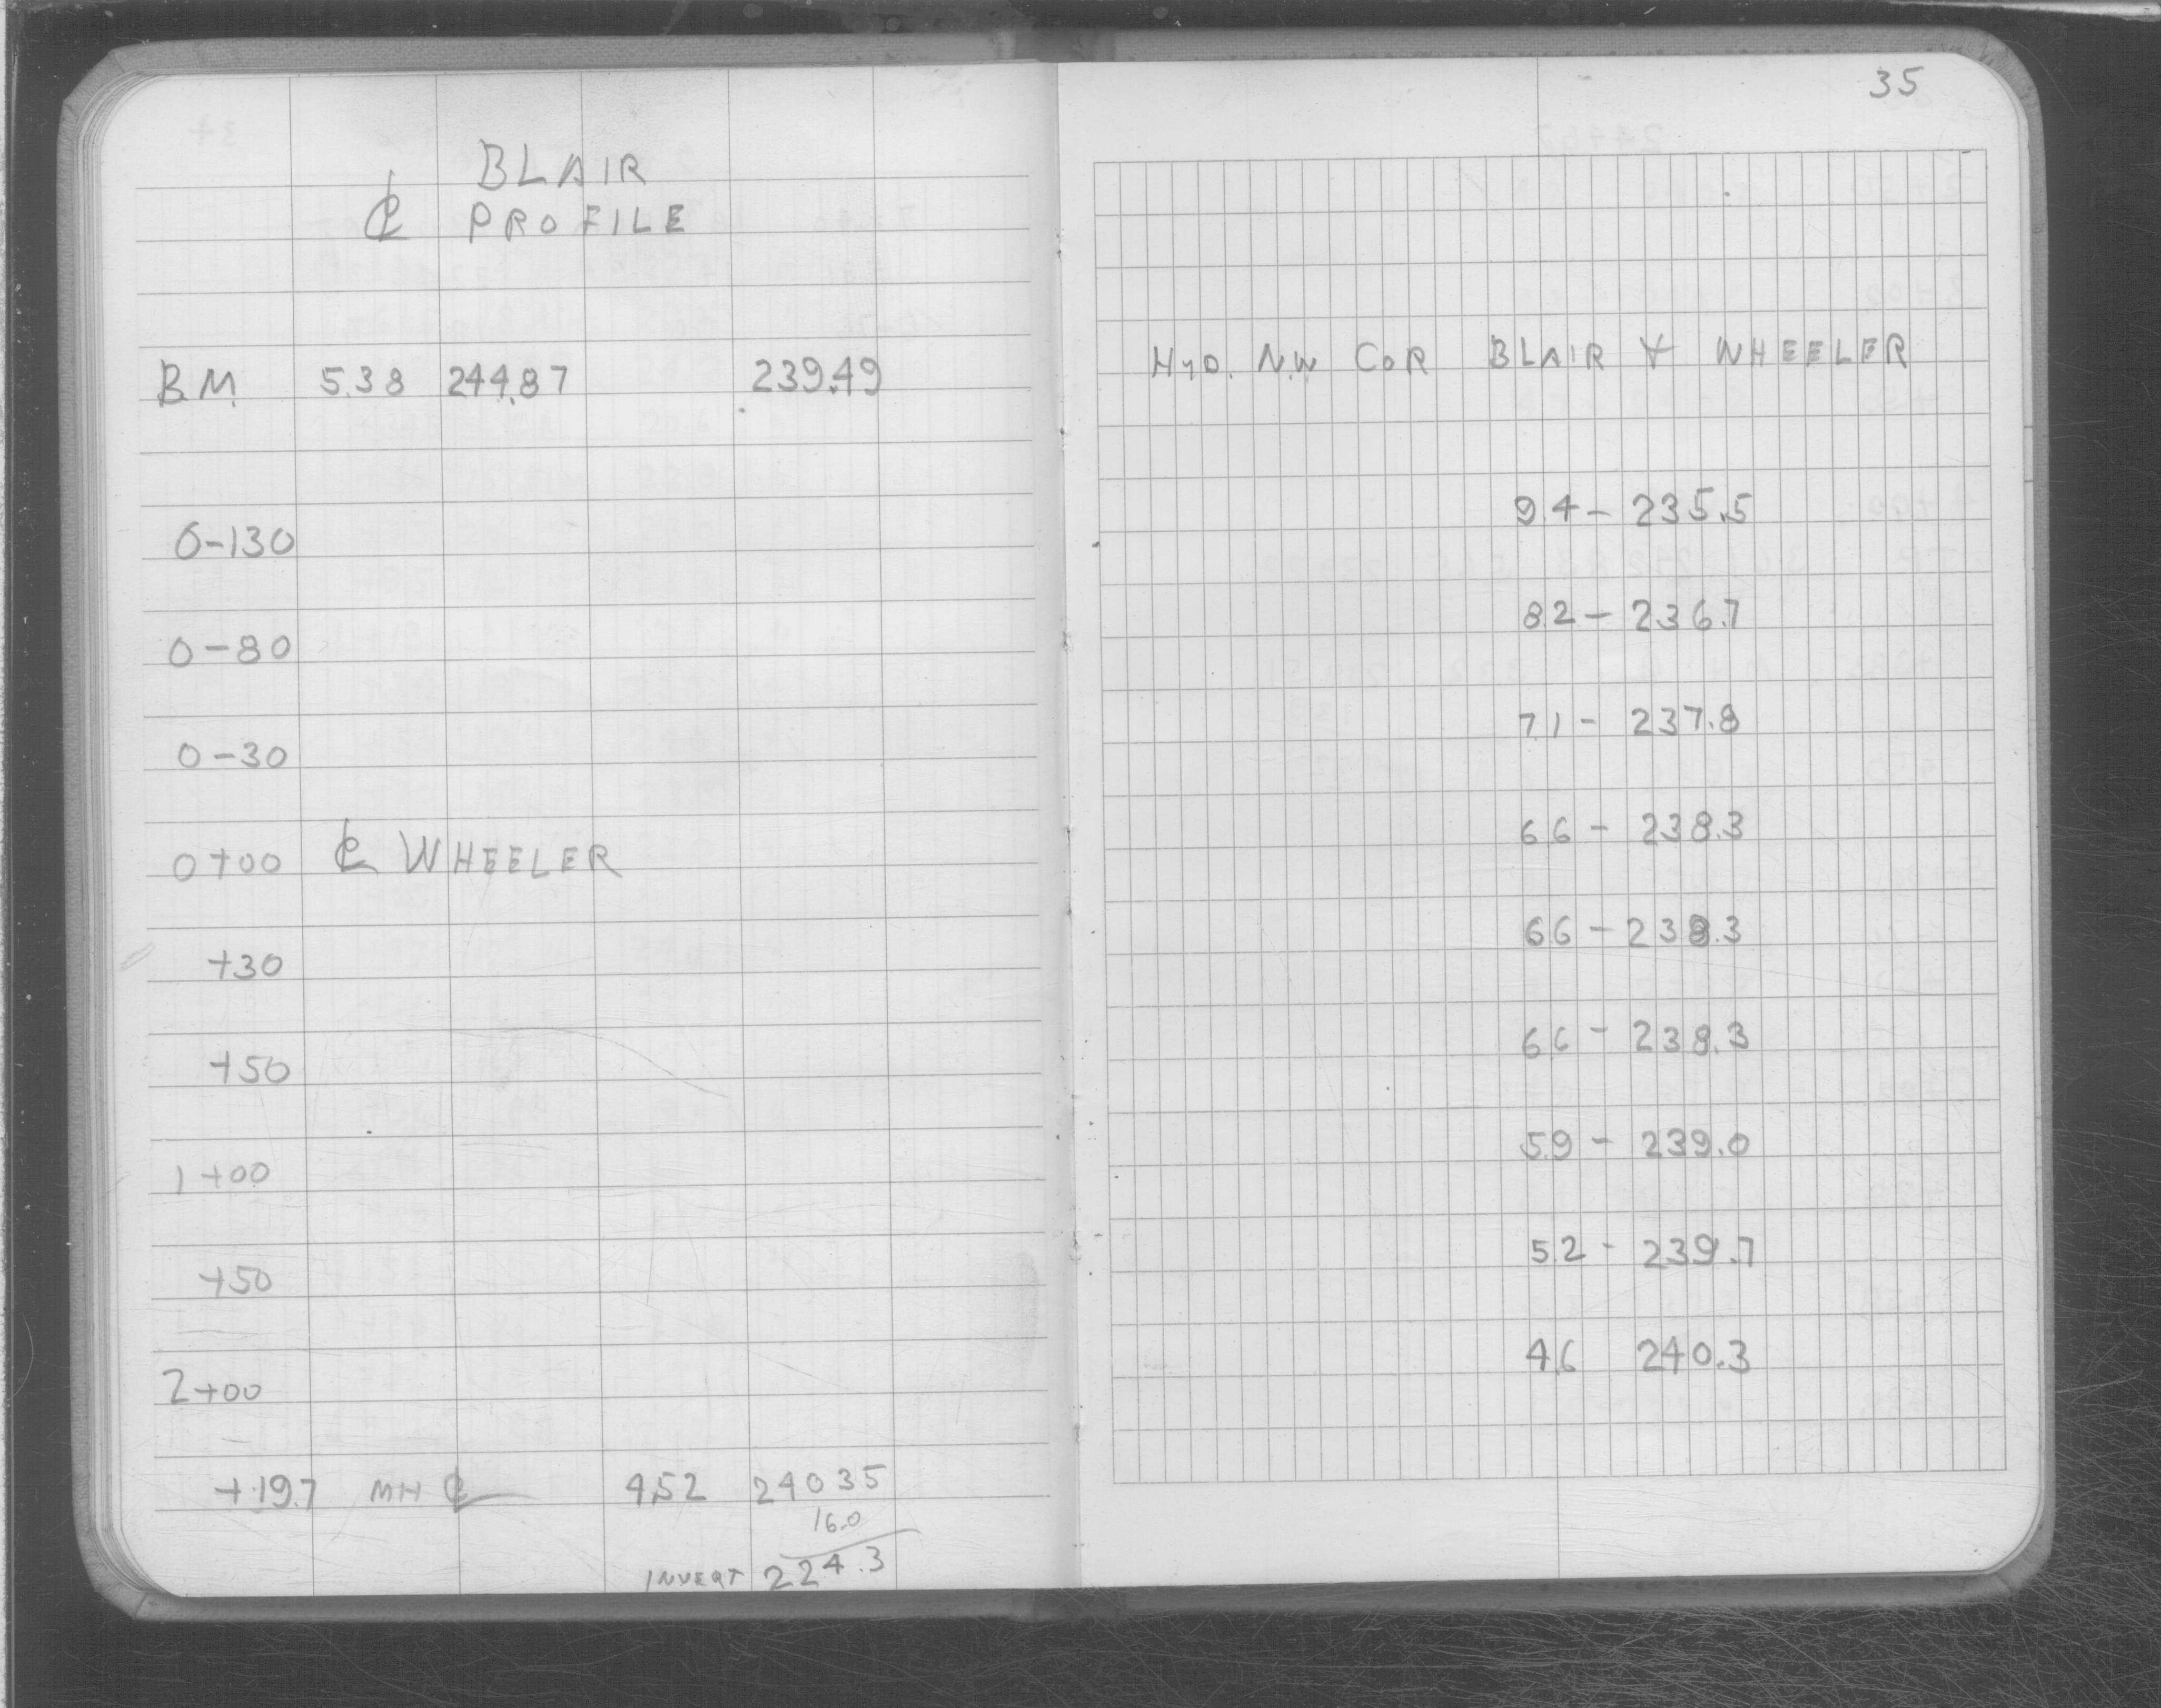 35
BLAIR
℄ PROFILE
B.M. 5.38 244.87 239.49 HYD. N.W COR BLAIR & WHEELER
0-130 9.4 - 235.5
0-80 8.2 - 236.7
0-30 7.1 - 237.8
0+00 ℄ WHEELER 6.6 - 238.3
+30 6.6 - 238.3
+50 6.6 - 238.3
1+00 5.9 - 239.0
+50 5.2 - 239.7
2+00 4.6 240.3
+19.7 MH ℄ 4.52 240.35
16.0
INVERT 224.3